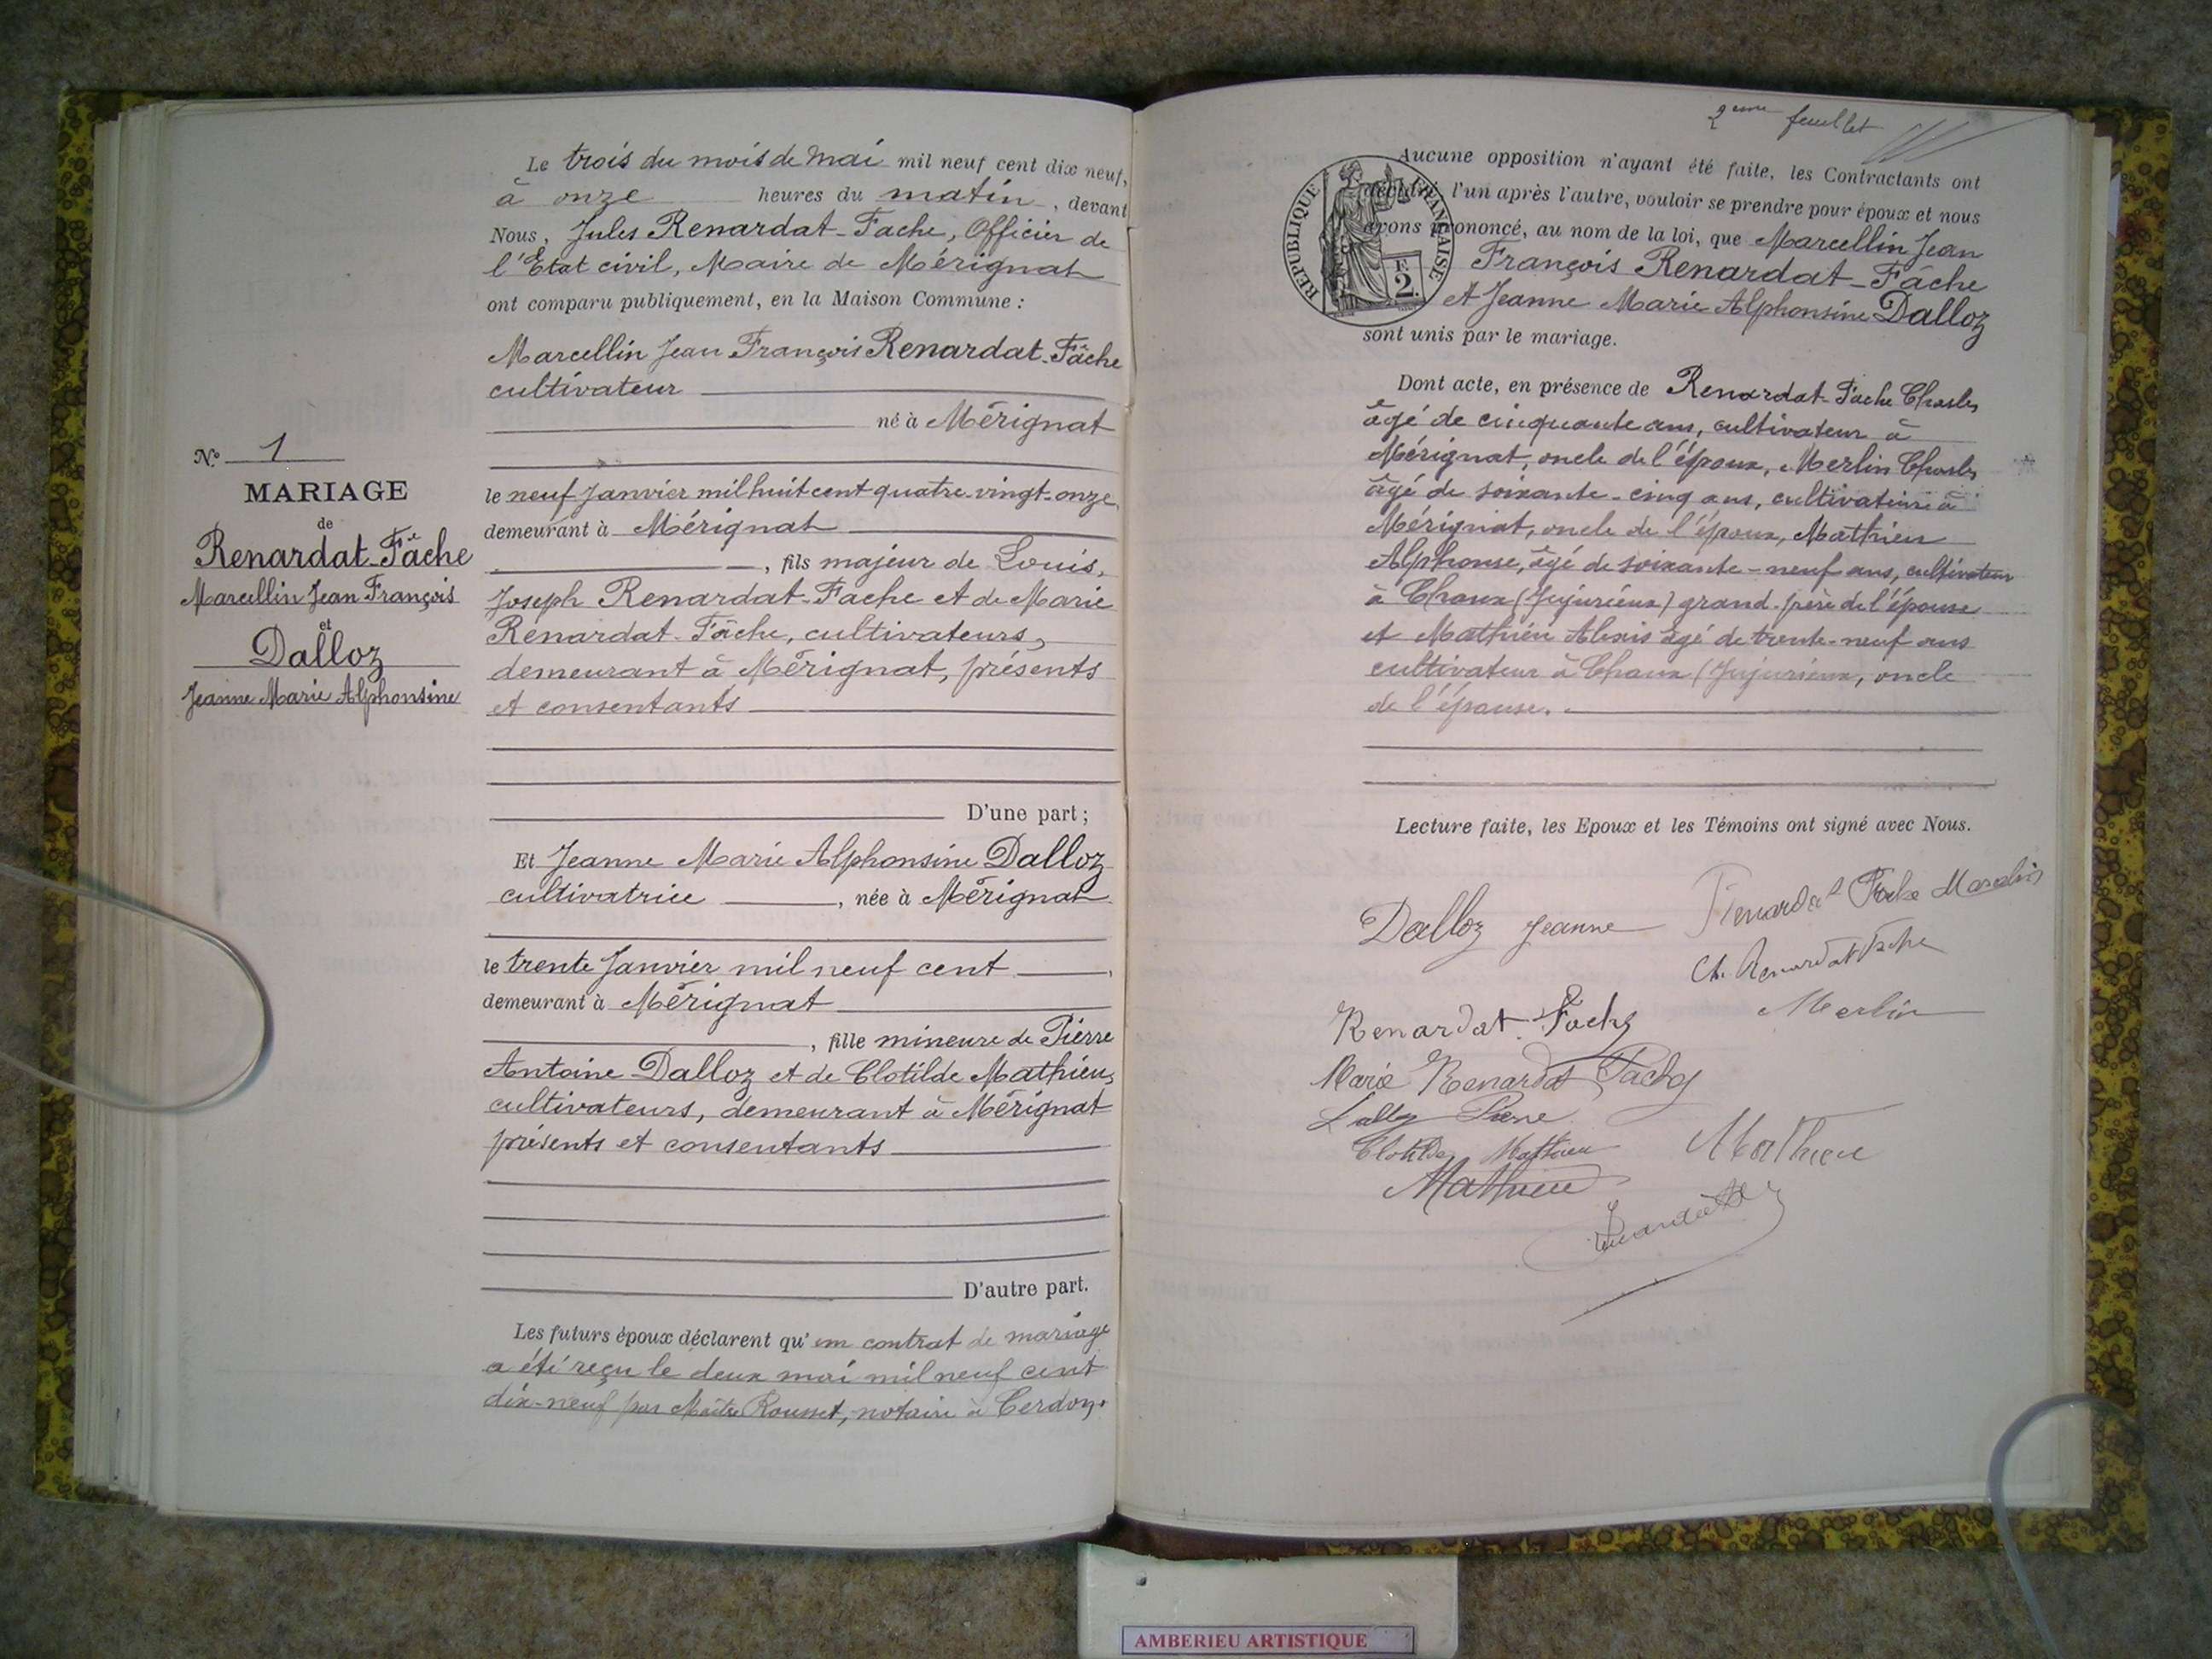 N.o 1
MARIAGE
de
Renardat-Fâche
Marcellin Jean François
et
Dalloz
Jeanne Marie Alphonsine
Le trois du mois de Mai mil neuf cent dix neuf,
à onze heures du matin, devant
Nous, Jules Renardat-Fache, Officier de
l'Etat civil, Maire de Mérignat
ont comparu publiquement, en la Maison Commune :
Marcellin Jean François Renardat-Fâche
cultivateur
né à Mérignat
le neuf Janvier mil huit cent quatre-vingt-onze,
demeurant à Mérignat
, fils majeur de Louis,
Joseph Renardat-Fache et de Marie
Renardat-Fâche, cultivateurs,
demeurant à Mérignat, présents
et consentants
D'une part ;
Et Jeanne Marie Alphonsine Dalloz
cultivatrice, née à Mérignat
le trente Janvier mil neuf cent,
demeurant à Mérignat
, fille mineure de Pierre
Antoine Dalloz et de Clotilde Mathieu,
cultivateurs, demeurant à Mérignat
présents et consentants
D'autre part.
Les futurs époux déclarent qu'un contrat de mariage
a été reçu le deux mai mil neuf cent
dix-neuf par Maître Rousset, notaire à Cerdon.
2eme feuillet
REPUBLIQUE FRANÇAISE
F.
2.
Aucune opposition n'ayant été faite, les Contractants ont
déclaré, l'un après l'autre, vouloir se prendre pour époux et nous
avons prononcé, au nom de la loi, que Marcellin Jean
François Renardat-Fâche
et Jeanne Marie Alphonsine Dalloz
sont unis par le mariage.
Dont acte, en présence de Renardat-Fache Charles
âgé de cinquante ans, cultivateur à
Mérignat, oncle de l'époux, Merlin Charles
âgé de soixante-cinq ans, cultivateur à
Mérignat, oncle de l'époux, Mathieu
Alphonse, âgé de soixante-neuf ans, cultivateur
à Chaux (Jujurieux) grand-père de l'épouse
et Mathieu Alexis âgé de trente-neuf ans
cultivateur à Chaux (Jujurieux, oncle
de l'épouse.
Lecture faite, les Epoux et les Témoins ont signé avec Nous.
Dalloz Jeanne Renardat Fache Marcelin
Ch. Renardat Fache
Renardat-Fache Merlin
Marie Renardat Fache
Dalloz Pierre
Clotilde Mathieu Mathieu
Mathieu
AMBERIEU ARTISTIQUE